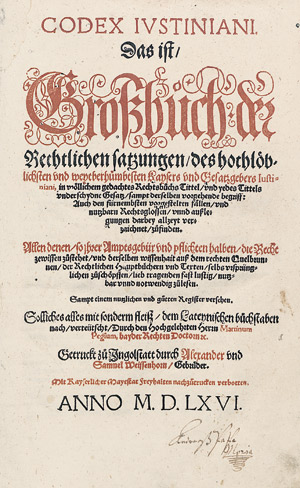 CODEX IVSTINIANI.
Das ist/
Großbůch der
Rechtlichen satzungen/ des hochlöb-
lichsten vnd weytberhümbtesten Kaysers vnd Gesatzgebers Iusti-
niani, in völlichem gedachtes Rechtsbůchs Tittel/ vnd yedes Tittels
vnderschydne Gesatz/ sampt derselben vorgehende begriff:
Auch den fürnembsten vorgestelten fällen/ vnd
nutzbarn Rechtsglossen/ vnnd außle-
gungen darbey allzeyt ver-
zaichnet/ zůfinden.
Allen denen/ so jhrer Ampts gebür vnd pflichten halben/ die Rechte
zewissen zůstehet/ vnd derselben wissenhait auß dem rechten Quelbrun-
nen/ der Rechtlichen Hauptbüchern vnd Texten/
lichen zůschöpffen/ lieb tragenden fast lustig/ nutz-
bar vnnd notwendig zůlesen.
Sampt einem nutzlichen vnd gůten Register versehen.
Solliches alles mit sonderm fleiß/ dem Lateynischen bůchstaben
nach/ verteütscht/ Durch den Hochgelehrten Herrn Martinum
Pegium, bayder Rechten Doctorn &c.
Getruckt zů Ingolstatt durch Alexander vnd
Samuel Weissenhorn/ Gebrüder.
Mit Kayserlicher Mayestat Freyhaiten nachzůtrucken verbotten.
ANNO M. D. LXVI.